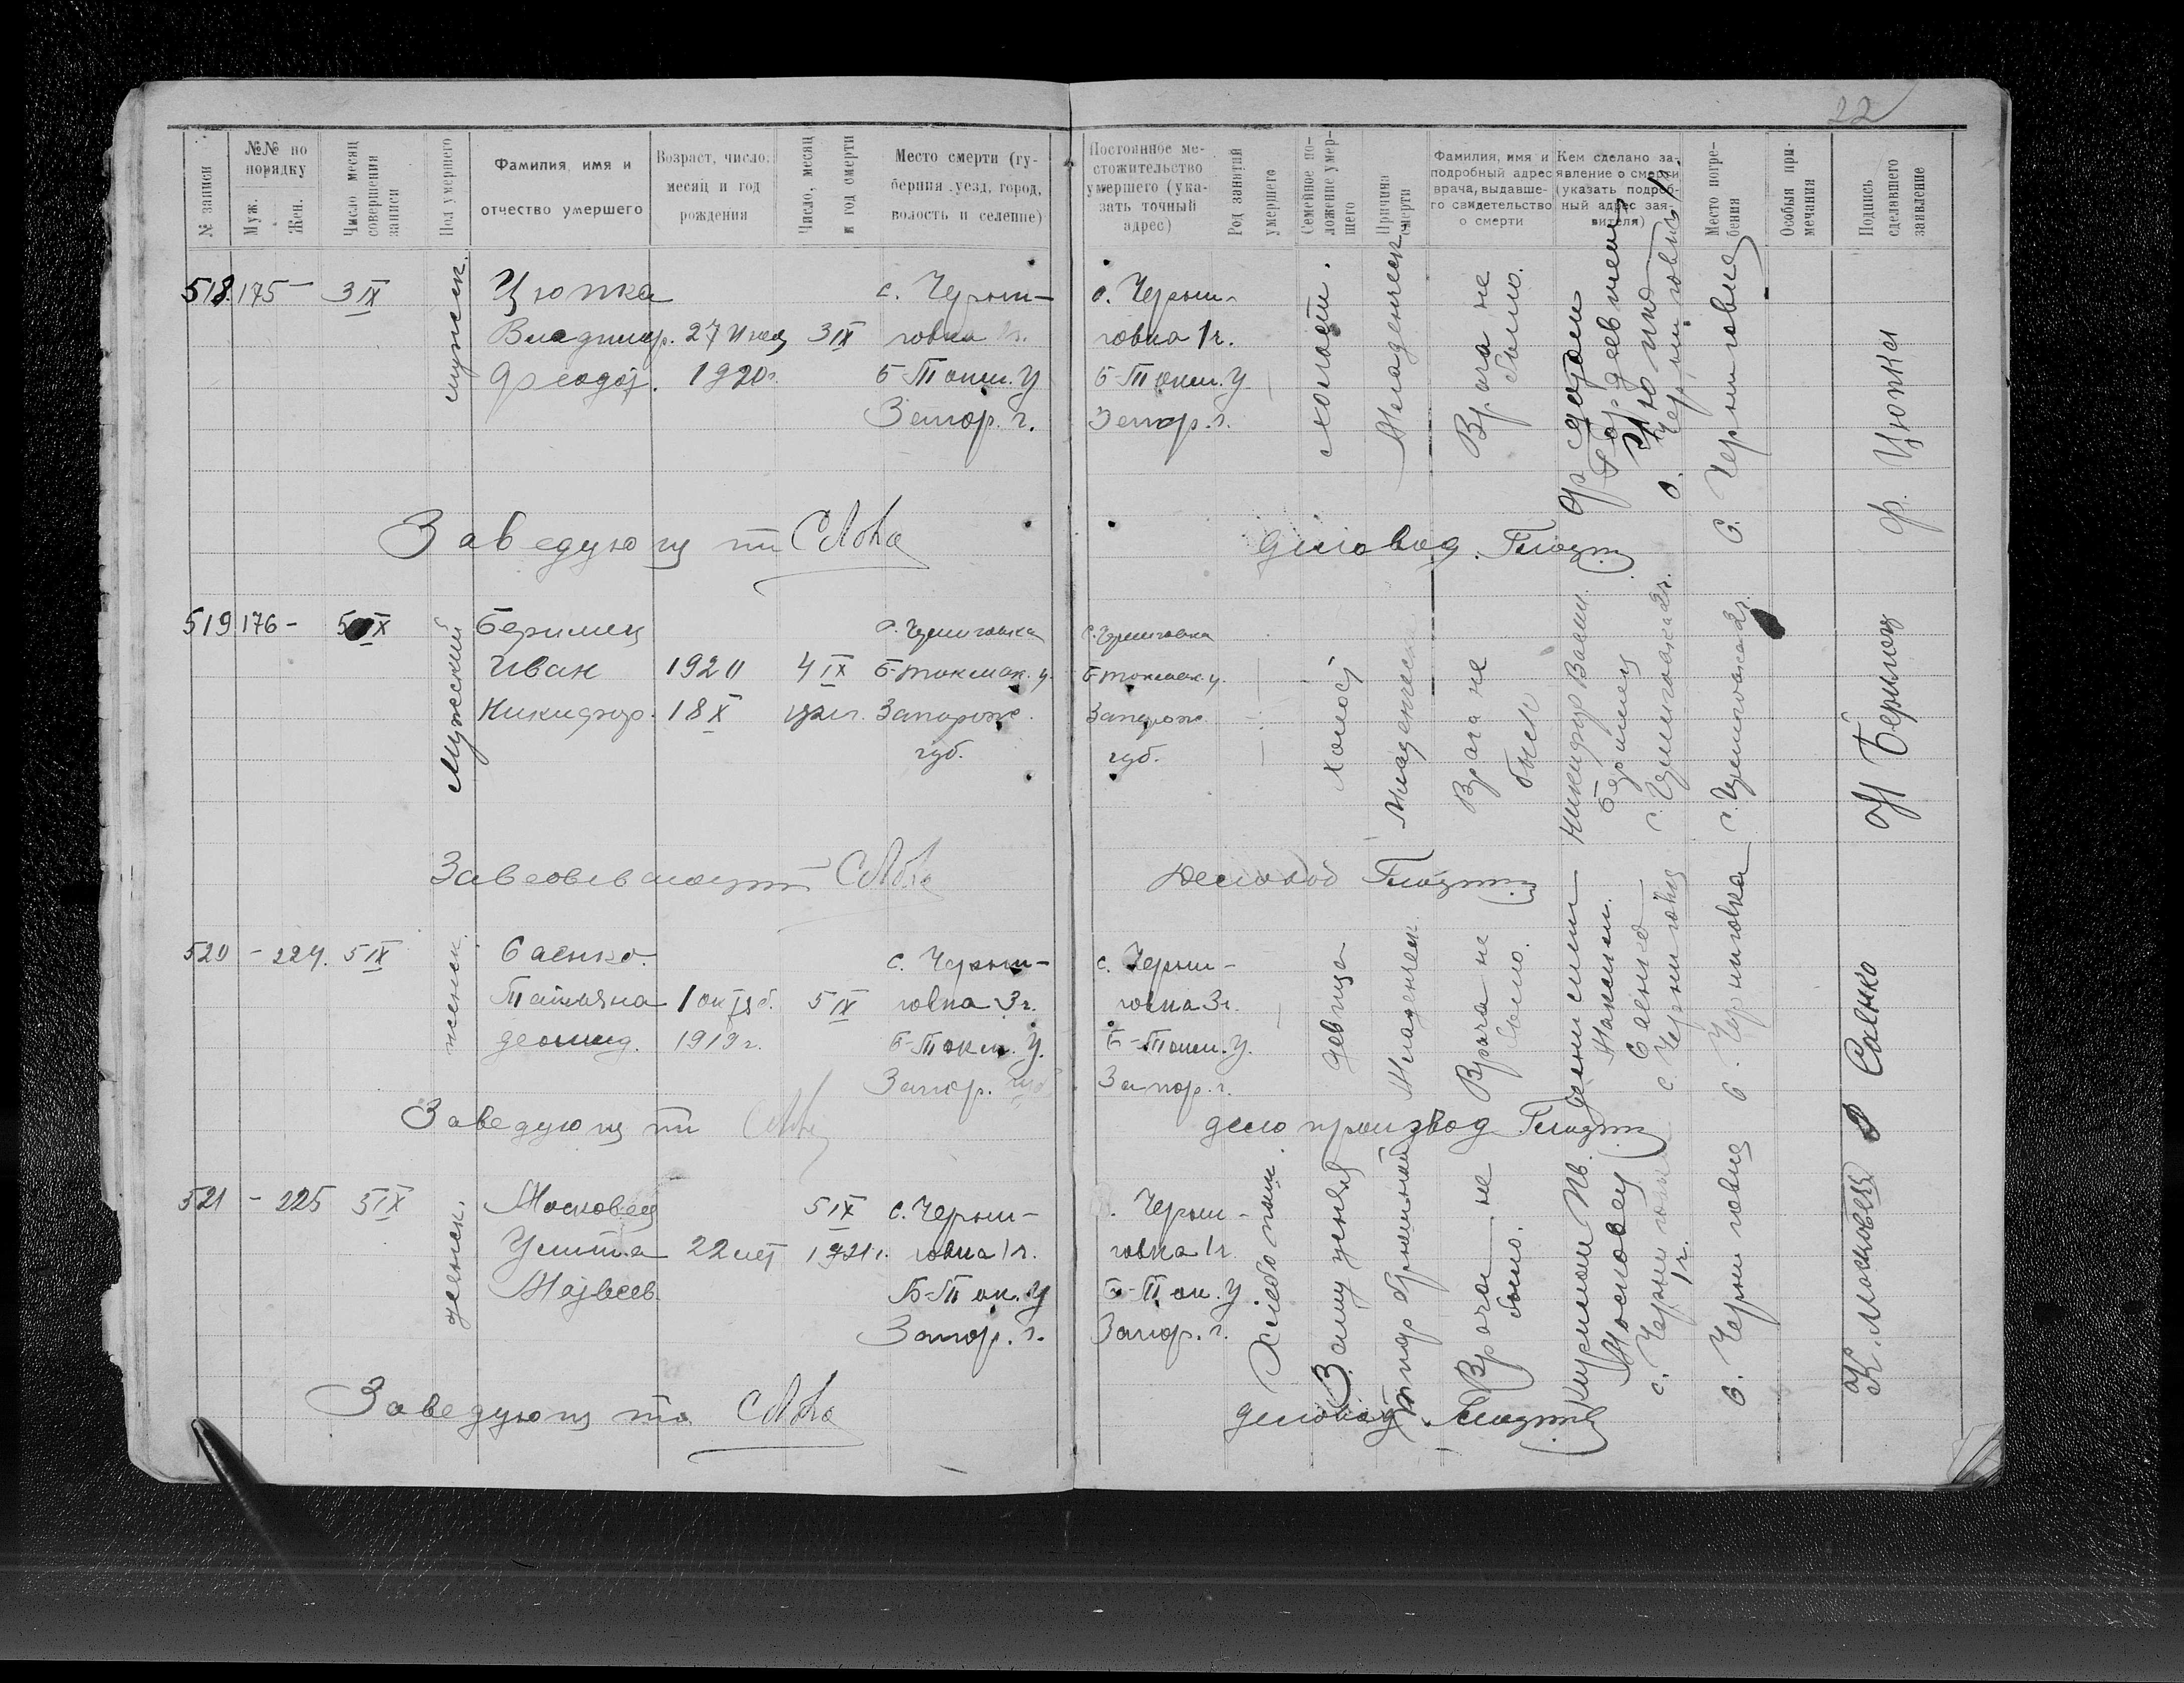 22
№ записи
№№ по порядку
Муж.
Жен.
Число месяц совершения записи
Пол умершего
Фамилия, имя и отчество умершего
Возраст, число, месяц и год рождения
Число, месяц и год смерти
Место смерти (губерния уезд, город, волость и селение)
Постоянное местожительство умершего (указать точный адрес)
Род занятий умершего
Семейное положение умершего
Причина смерти
Фамилия, имя и подробный адрес врача, выдавшего свидетельство о смерти
Кем сделано заявление о смерти (указать подробный адрес заявителя)
Место погребения
Особыя примечания
Подпись сделавшего заявление
518. 175 –
3 IX
мужск.
Цюпка
Владимир.
Феодот.
27
1920г.
3 IX
с. Черни-
говка 1г.
Б-Токм. У
Запор. г.
с. Черни-
говка 1г.
Б-Токм. У
Запор. г.
холост.
Младенческ
Врача не
было.
Феодот
Гордеевич
Цюпка
с. Черниговка 1г.
с. Черниговка
Ф. Цюпка
Заведующ
деловод.
519 176 –
5 IX
Мужский
Беримец
Иван
Никифор.
1920
18 X
4 IX
1921г.
с. Черниговка
Б-токмак. у.
Запорож.
губ.
с. Черниговка
Б-токмак у.
Запорож
губ.
холост
Младенческ
Врача не
было
Никифор
Беримец
с. Черниговка 2г.
с. Черниговка 2г.
Н Беримец
Деловод
520 – 224. 5 IX
женск.
Саенко.
Татьяна
Демид.
1 октяб.
1919 г.
5 IX
с. Черни-
говка 3г.
Б-Токм. У.
Запор. губ
с. Черни-
говка 3г.
Б-Токм. У.
Запор. г.
девица
Младенческ
Врача не
было.
Максим.
Саенко
с. Черниговка
с. Черниговка
Д Саенко
Заведующ
делопроизвод
521 – 225 5 IX
женск.
Московец
Улита
Матвеев
22 лет
5 IX
1921г.
с. Черни-
говка 1г.
Б-Ток. У
Запор. г.
с. Черни-
говка 1г
Б-Ток. У
Запор. г.
Хлебопаш.
Замужняя
Врача не
было.
Московец
с. Черниговка
1г.
с. Черниговка
К. Московец
Заведующ
деловод.